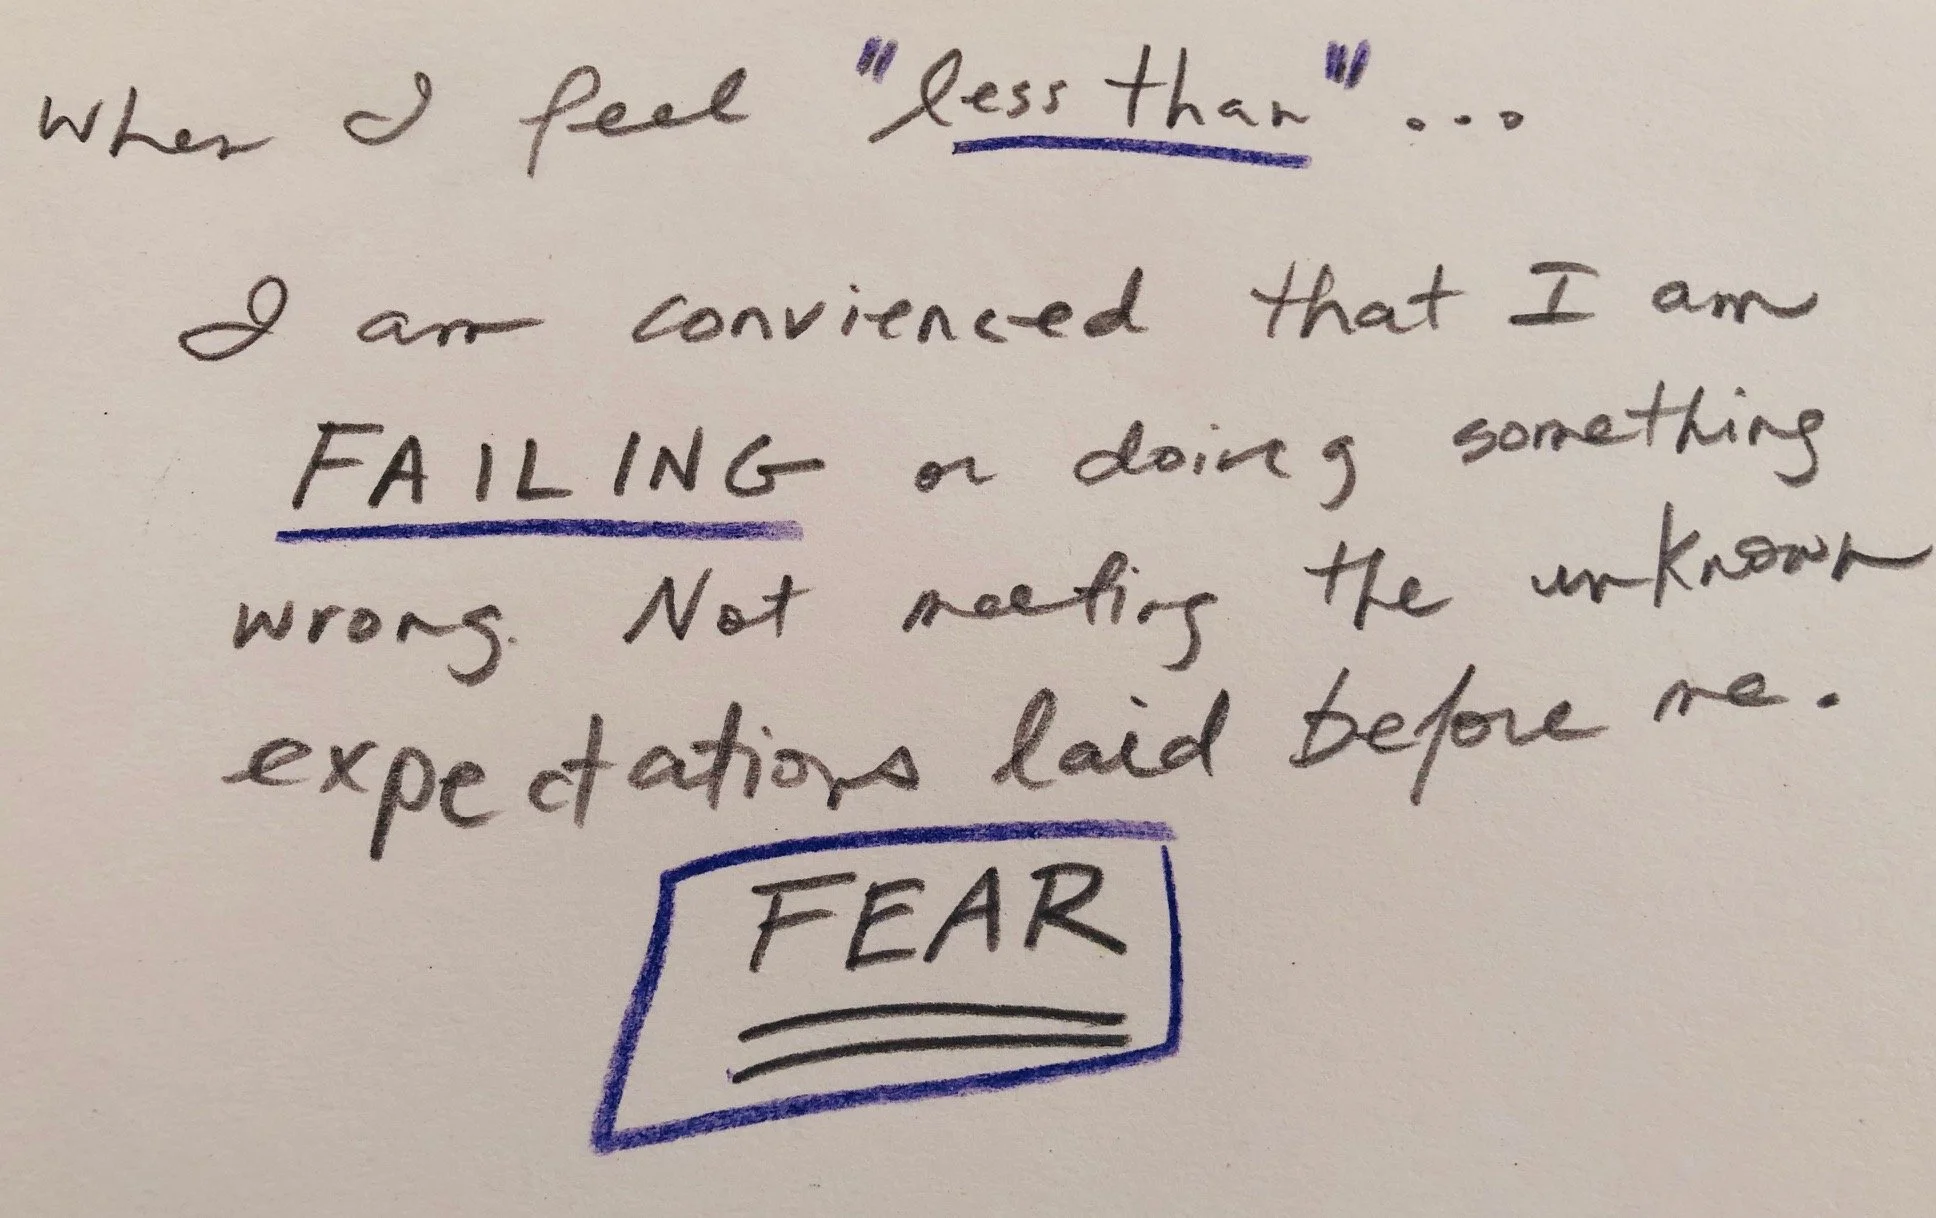 when I feel "less than"...
I am convienced that I am
FAILING or doing something
wrong. Not meeting the unknown
expectations laid before me.
FEAR